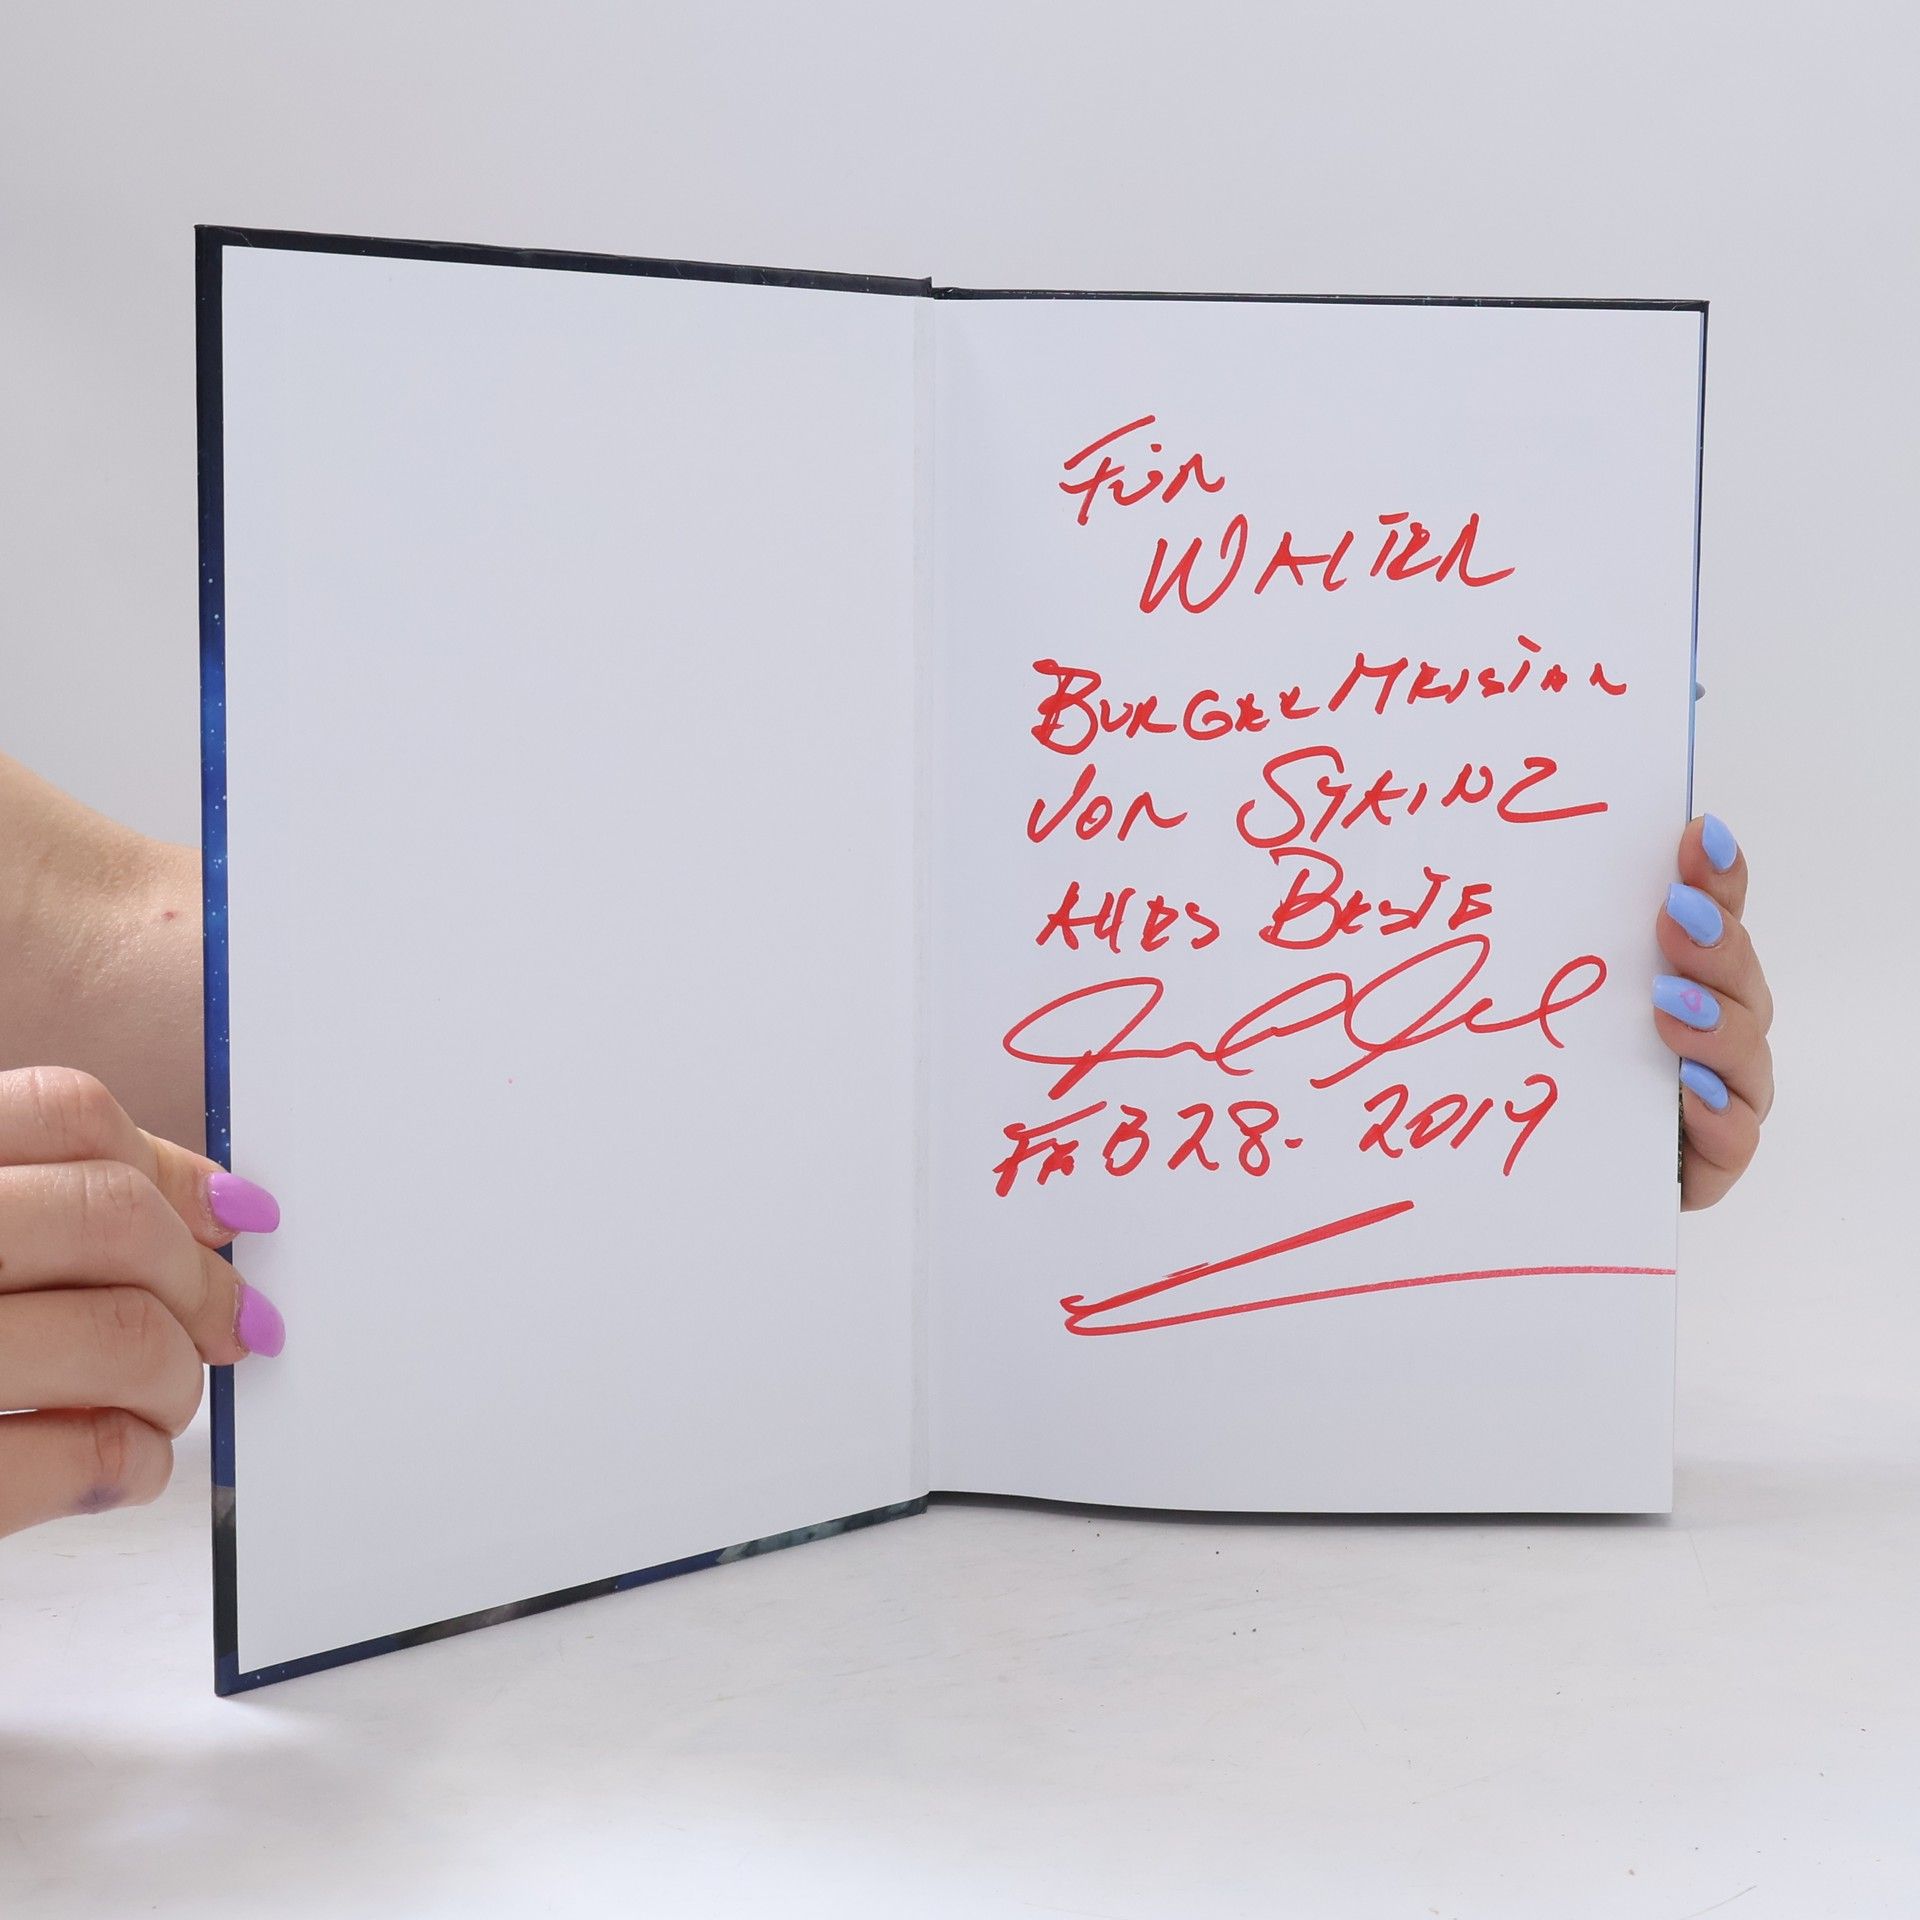 Für
WALTER
BURGERMEISTER
VON STAINZ
ALLES BESTE
FEB 28. 2019